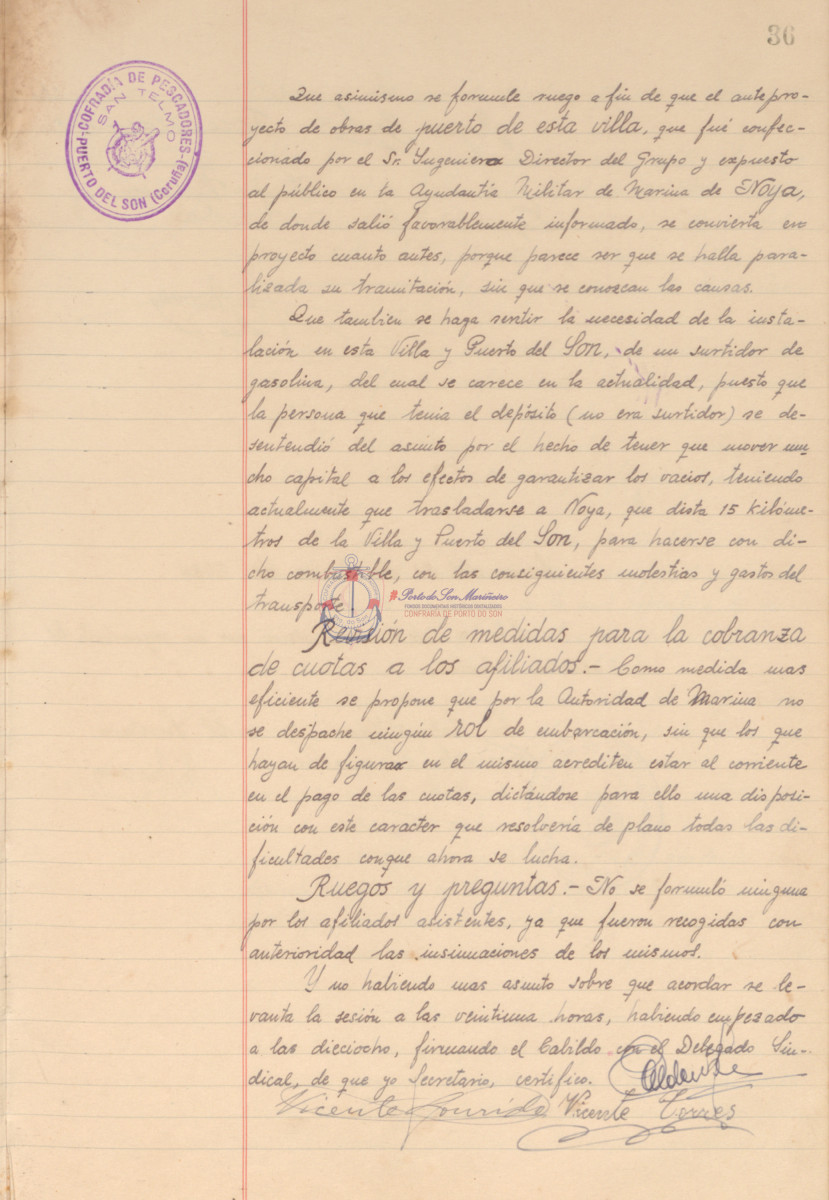 36
COFRADÍA DE PESCADORES
SAN TELMO
PUERTO DEL SON (Coruña)
Que asimismo se formule ruego a fin de que el antepro-
yecto de obras de puerto de esta villa, que fué confec-
cionado por el Sr. Ingeniero Director del Grupo y expuesto
al público en la Ayudantía Militar de Marina de Noya,
de donde salió favorablemente informado, se convierta en
proyecto cuanto antes, porque parece ser que se halla para-
lizada su tramitación, sin que se conozcan las causas.
Que tambien se haga sentir la necesidad de la insta-
lación en esta Villa y Puerto del Son, de un surtidor de
gasolina, del cual se carece en la actualidad, puesto que
la persona que tenia el depósito (no era surtidor) se de-
sentendió del asunto por el hecho de tener que mover mu-
cho capital a los efectos de garantizar los vacios, teniendo
actualmente que trasladarse a Noya, que dista 15 kilóme-
tros de la Villa y Puerto del Son, para hacerse con di-
cho combustible, con las consiguientes molestias y gastos del
transporte
Porto do Son Mariñeiro
FONDOS DOCUMENTAIS HISTÓRICOS DIXITALIZADOS
CONFRARÍA DE PORTO DO SON
Revisión de medidas para la cobranza
de cuotas a los afiliados.- Como medida mas
eficiente se propone que por la Autoridad de Marina no
se despache ningún rol de embarcación, sin que los que
hayan de figurar en el mismo acrediten estar al corriente
en el pago de las cuotas, dictándose para ello una disposi-
ción con este caracter que resolvería de plano todas las di-
ficultades conque ahora se lucha.
Ruegos y preguntas.- No se formuló ninguna
por los afiliados asistentes, ya que fueron recogidas con
anterioridad las insinuaciones de los mismos.
Y no habiendo mas asunto sobre que acordar se le-
vanta la sesión a las veintiuna horas, habiendo empezado
a las dieciocho, firmando el Cabildo con el Delegado Sin-
dical, de que yo Secretario, certifico.
Vicente Vicente Torres